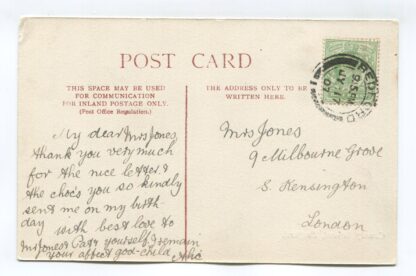 POST CARD
THIS SPACE MAY BE USED
FOR COMMUNICATION
FOR INLAND POSTAGE ONLY.
(Post Office Regulation.)
THE ADDRESS ONLY TO BE
WRITTEN HERE.
My dear Mrs Jones,
thank you very much
for the nice letter &
the choc's you so kindly
sent me on my birth-
day with best love to
Mr Jones & Patr yourself I remain
your affect god-child
Mrs Jones
9 Milbourne Grove
S. Kensington
London